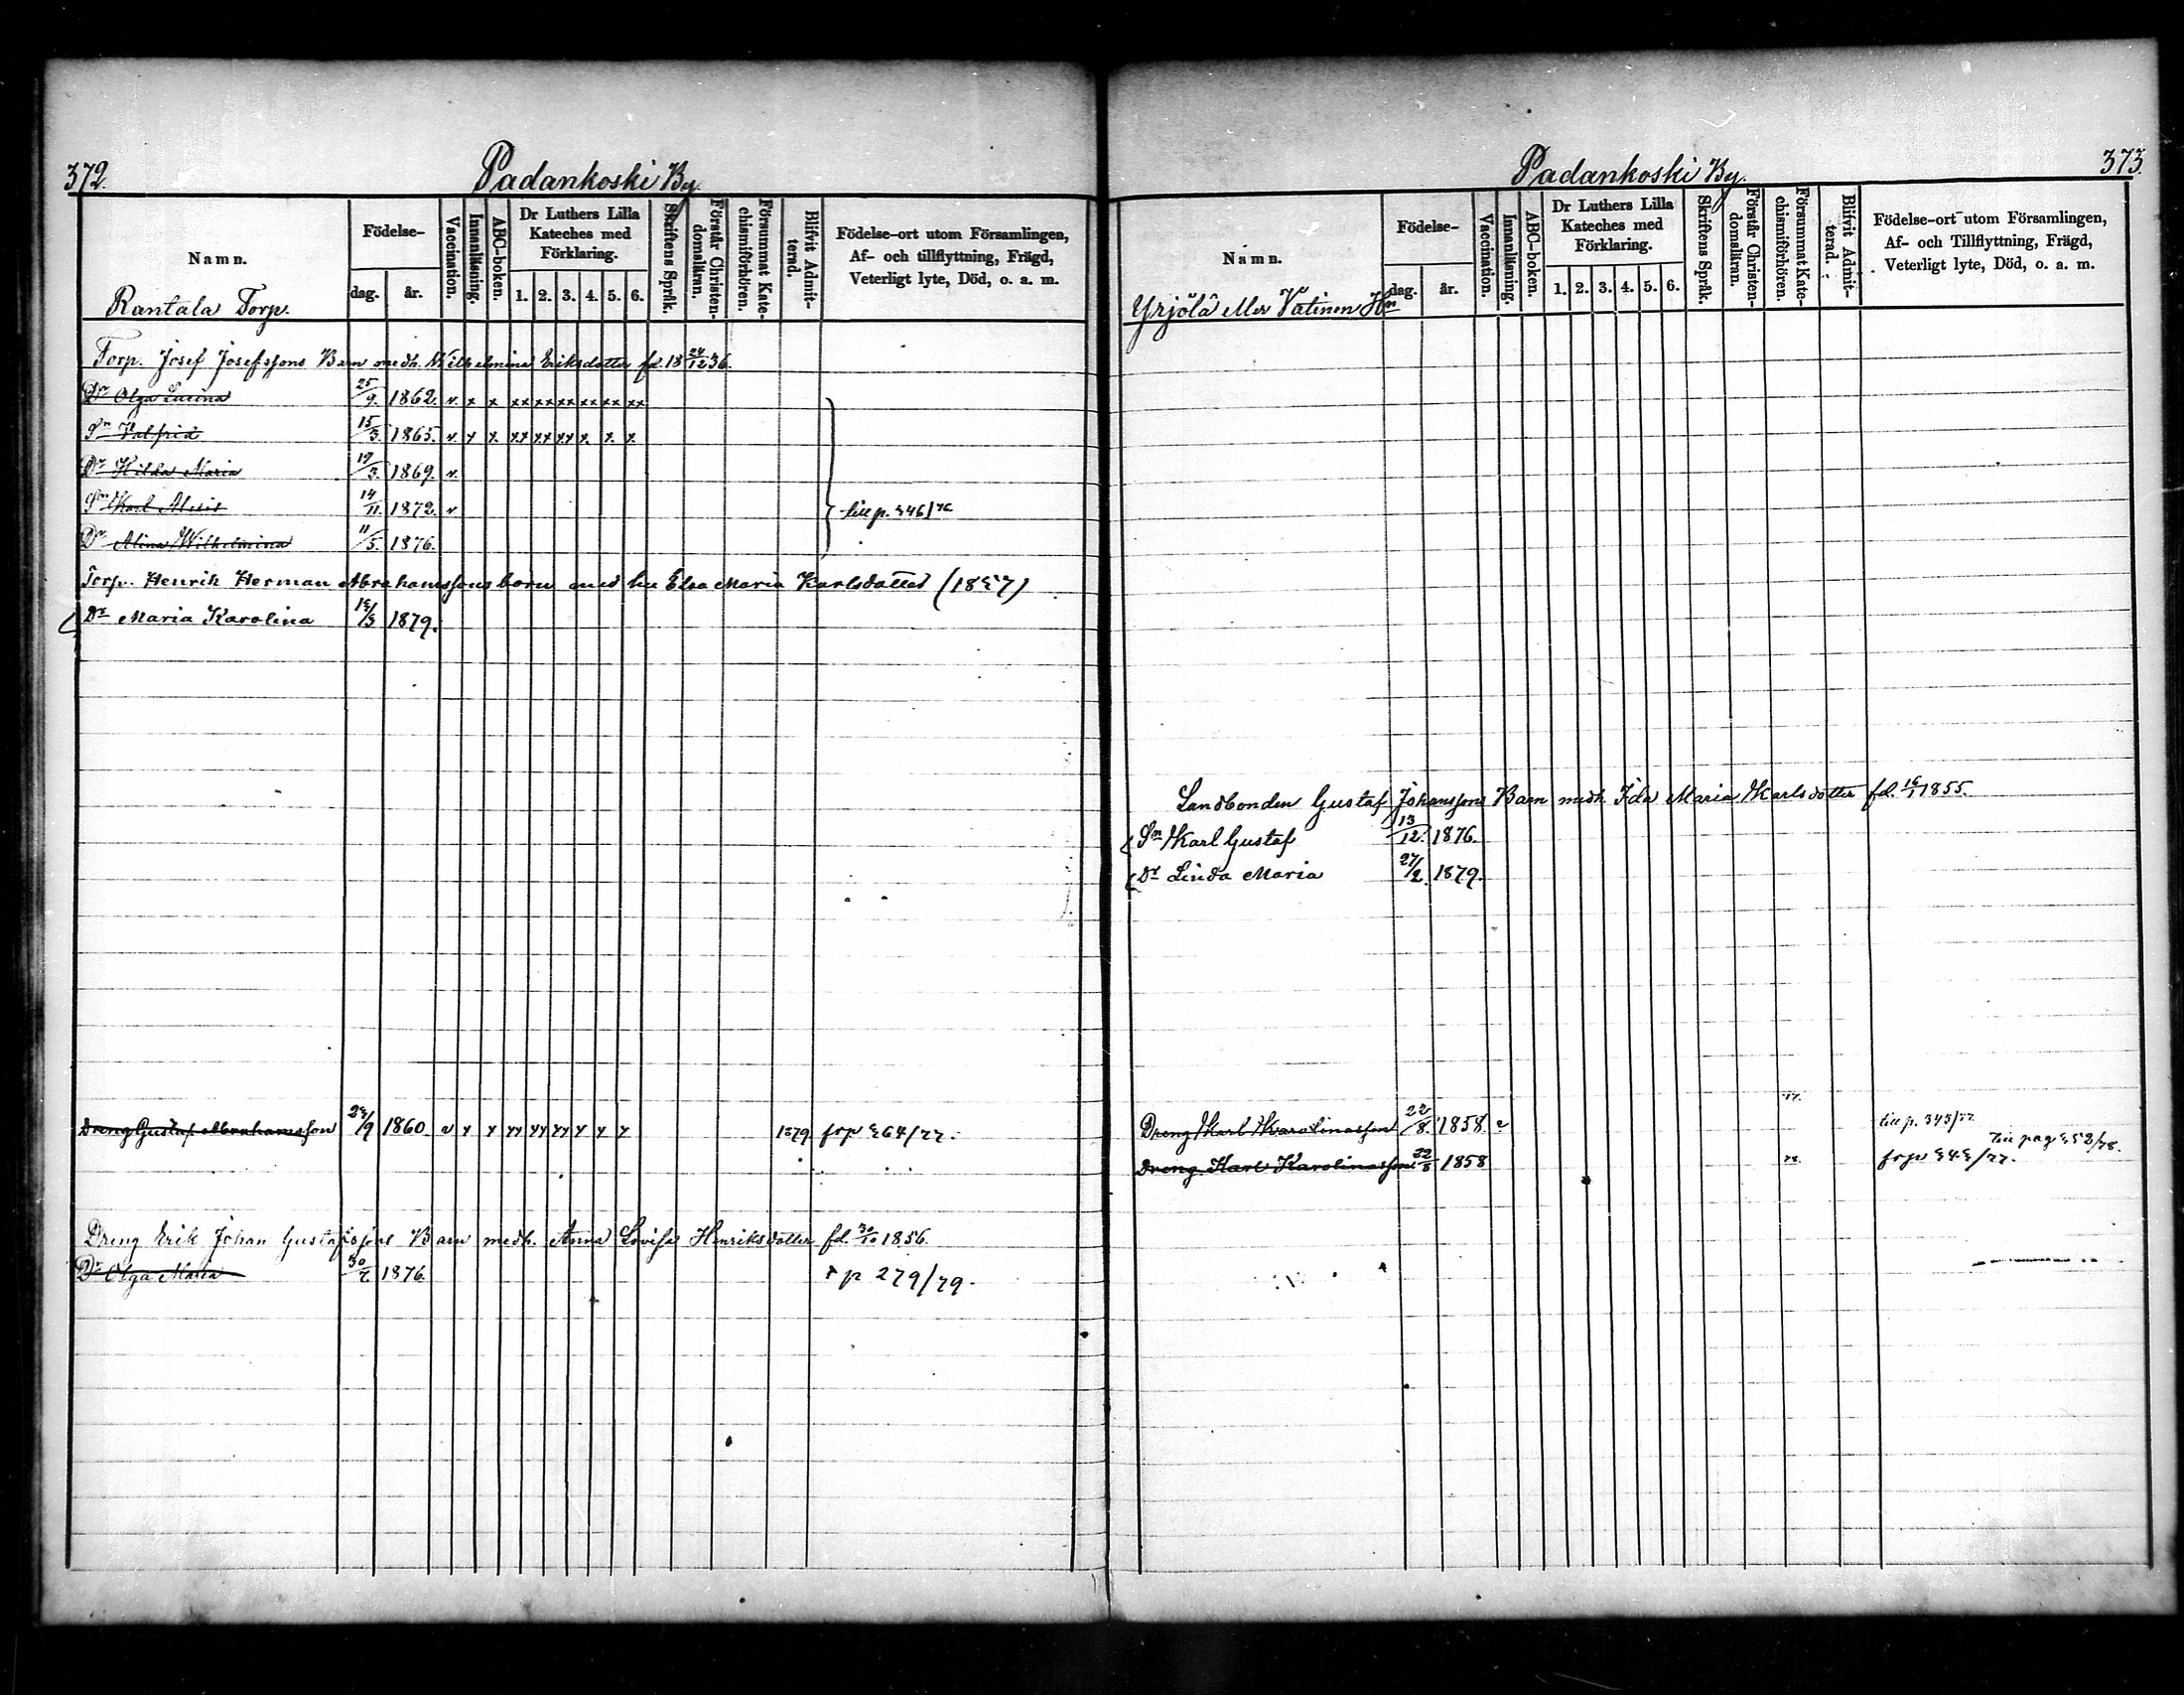 372.
Padankoski By.
Namn.
Födelse-
dag.
år.
Vaccination.
Innanläsning.
ABC-boken.
Dr Luthers Lilla Kateches med Förklaring.
1. 2. 3. 4. 5. 6.
Skriftens Språk.
Förstår Christendomsläran.
Försummat Katechismiförhören.
Blifvit Admitterad.
Födelse-ort utom Församlingen,
Af- och tillflyttning, Frägd,
Veterligt lyte, Död, o. a. m.
Rantala Torp.
Torp. Josef Josefssons Barn medh. Wilhelmina Eriksdotter fd. 18 24/12 36.
Dr Olga Lucina 25/9. 1862. v. x x xx xx xx xx xx xx
Sn Valfrid 15/3. 1865. v. x x xx xx xx x. x. x.
Dr Hilda Maria 19/3. 1869. v.
Sn Karl Alexis 14/11. 1872. v
till p. 346/76
Dr Alina Wilhelmina 11/5. 1876.
Torp. Henrik Herman Abrahamssons barn med hu Elsa Maria Karlsdotter (1857)
Dr Maria Karolina 1879.
Dreng Gustaf Abrahamsson 1860. v x x xx xx xx x x x 1879 fr p 364/77.
Dreng Erik Johan Gustafssons Barn medh. Anna Lovisa Henriksdotter fd. 30/10 1856.
Dr Olga Maria 30/7 1876. p 279/79.
373.
Padankoski By.
Namn.
Födelse-
dag.
år.
Vaccination.
Innanläsning.
ABC-boken.
Dr Luthers Lilla Kateches med Förklaring.
1. 2. 3. 4. 5. 6.
Skriftens Språk.
Förstår Christendomsläran.
Försummat Katechismiförhören.
Blifvit Admitterad.
Födelse-ort utom Församlingen,
Af- och Tillflyttning, Frägd,
Veterligt lyte, Död, o. a. m.
Yrjölä eller Vätinen Hn
Landbonden Gustaf Johanssons Barn medh. Ida Maria Karlsdotter fd. 1855.
Sn Karl Gustaf 13/12. 1876.
Dr Linda Maria 27/2. 1879.
77.
Dreng Karl Karolinasson 22/8. 1858. v till p. 343/77
till pag 352/78.
Dreng Karl Karolinasson 22/8 1858 78. fr p 343/77.